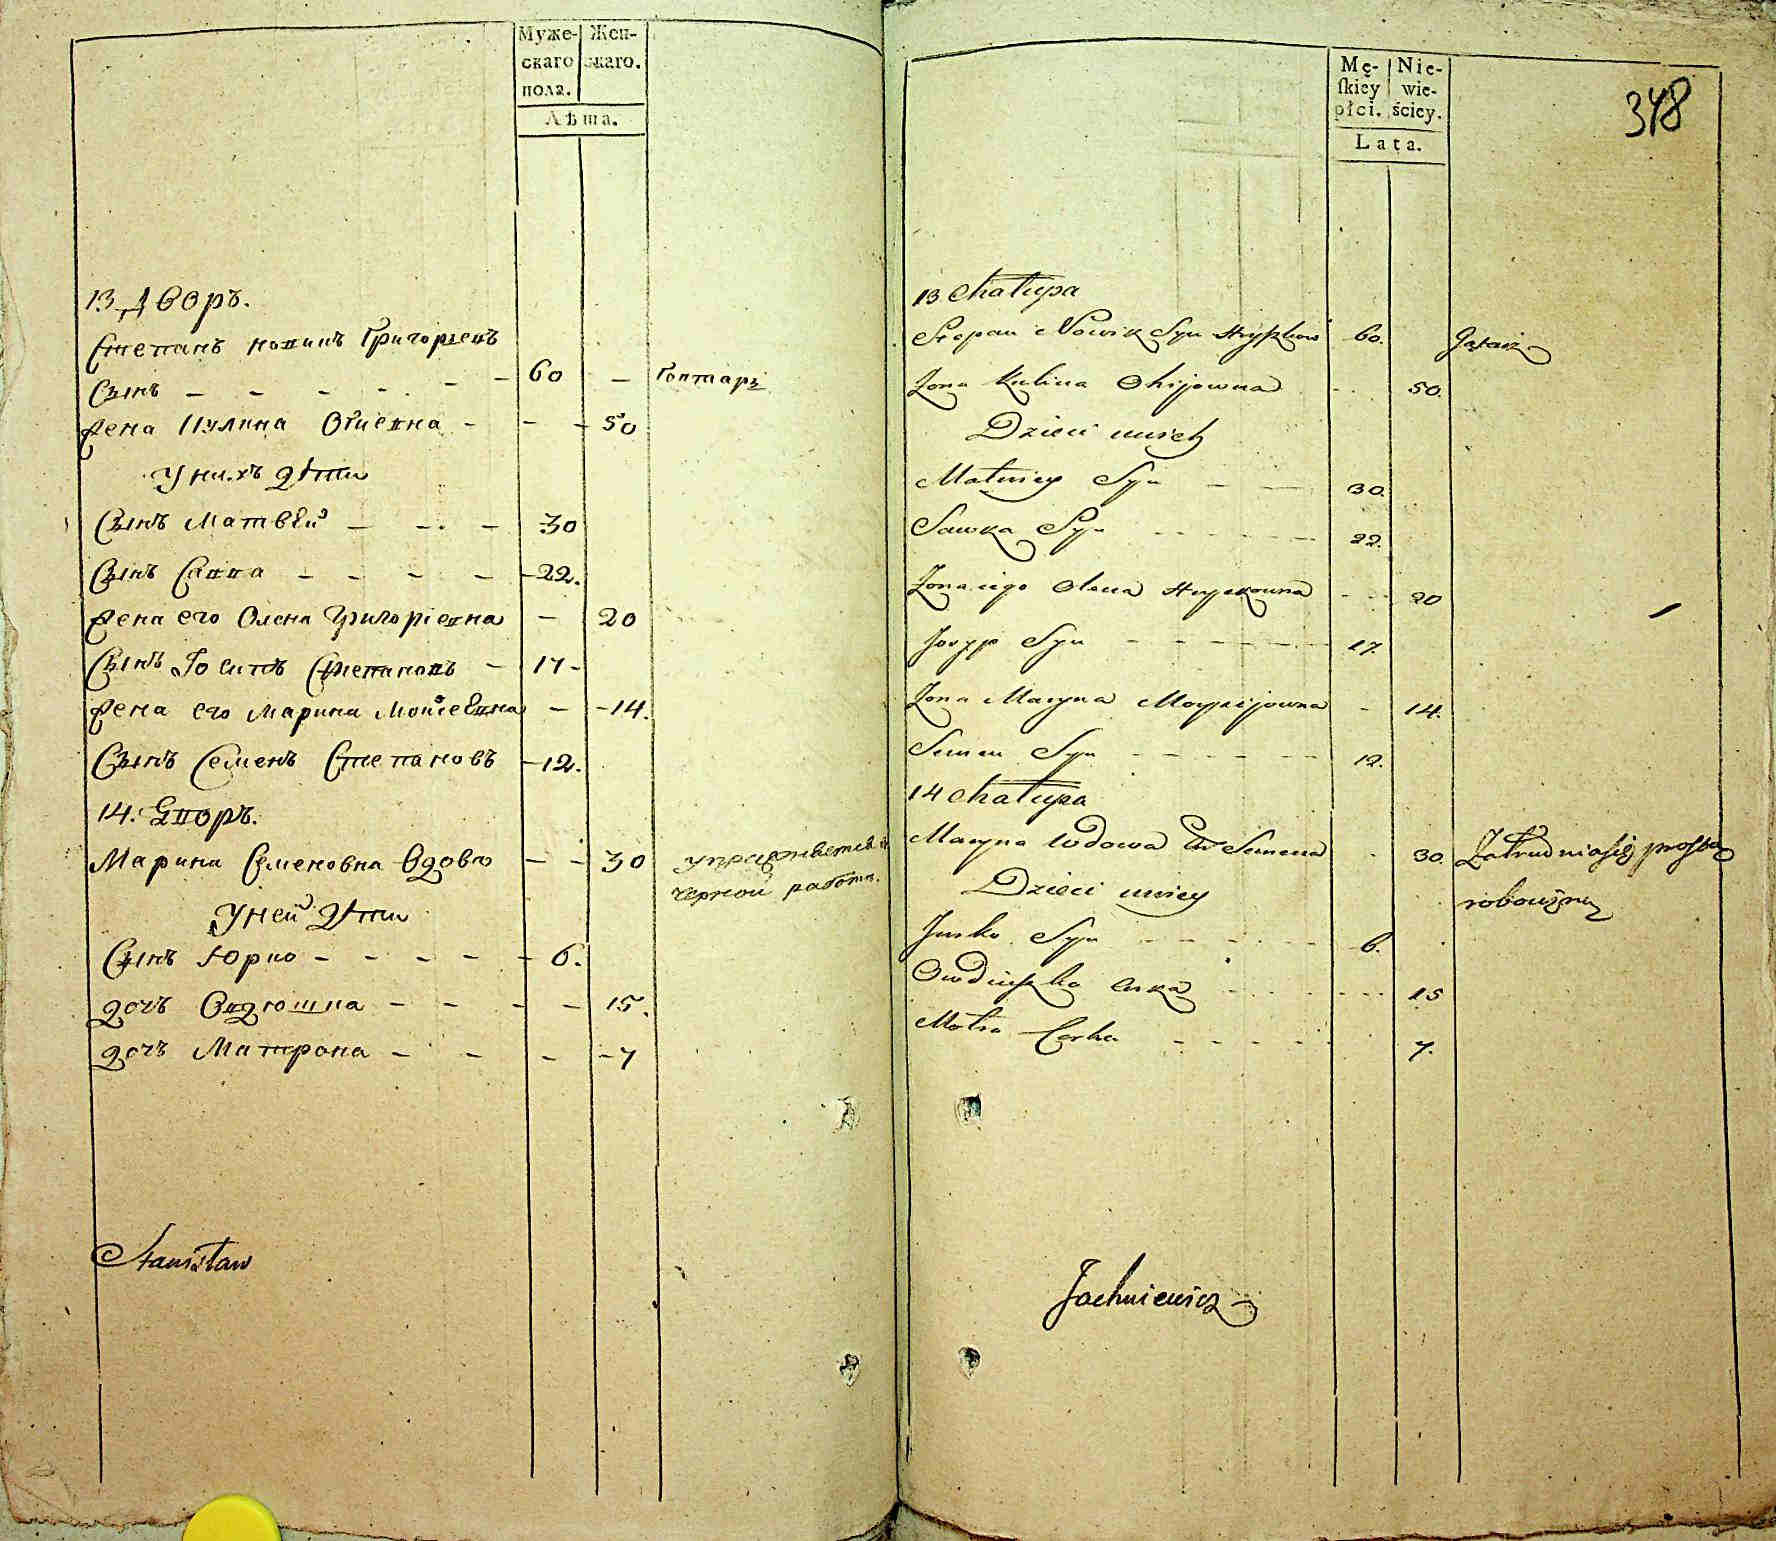 Муже- Жен-
скаго скаго.
пола.
Лѣта.
13 Дворъ.
Степанъ новикъ Григорьевъ
Сынъ 60 Гонтарь
Жена Кулина 50
У нихъ дѣти
Сынъ Матвѣй 30
Сынъ Савва 22.
Жена его Олена Григорїевна 20
Сынъ Іосипъ Степановъ 17
Жена его Марина Мойсеевна 14.
Сынъ Семенъ Степановъ 12.
14. Дворъ.
Марина Семеновна Вдова 30 упражняется в
черной работе.
У ней дѣти
Сынъ Юрко 6.
дочь Овдюшка 15.
дочь Матрона 7
Stanisław
Mę- Nie-
skiey wie-
płci. ściey.
Lata.
348
13 Chałupa
Stepan Nowik Syn Hryszkow 60.
Żona Kulina 50.
Dzieci unich
Matwiey Syn 30.
Sawka Syn 22.
Żona iego Olena Hryckowna 20
Jozyp Syn 17.
Żona Maryna Moysijowna 14.
Semen Syn 12.
14 Chałupa
Maryna wdowa Semena 30. Zatrudnia się prostą
robocizną
Dzieci uniey
Jurko Syn 6.
Owdiuszka Curka 15
Motra Corka 7.
Jachniewicz